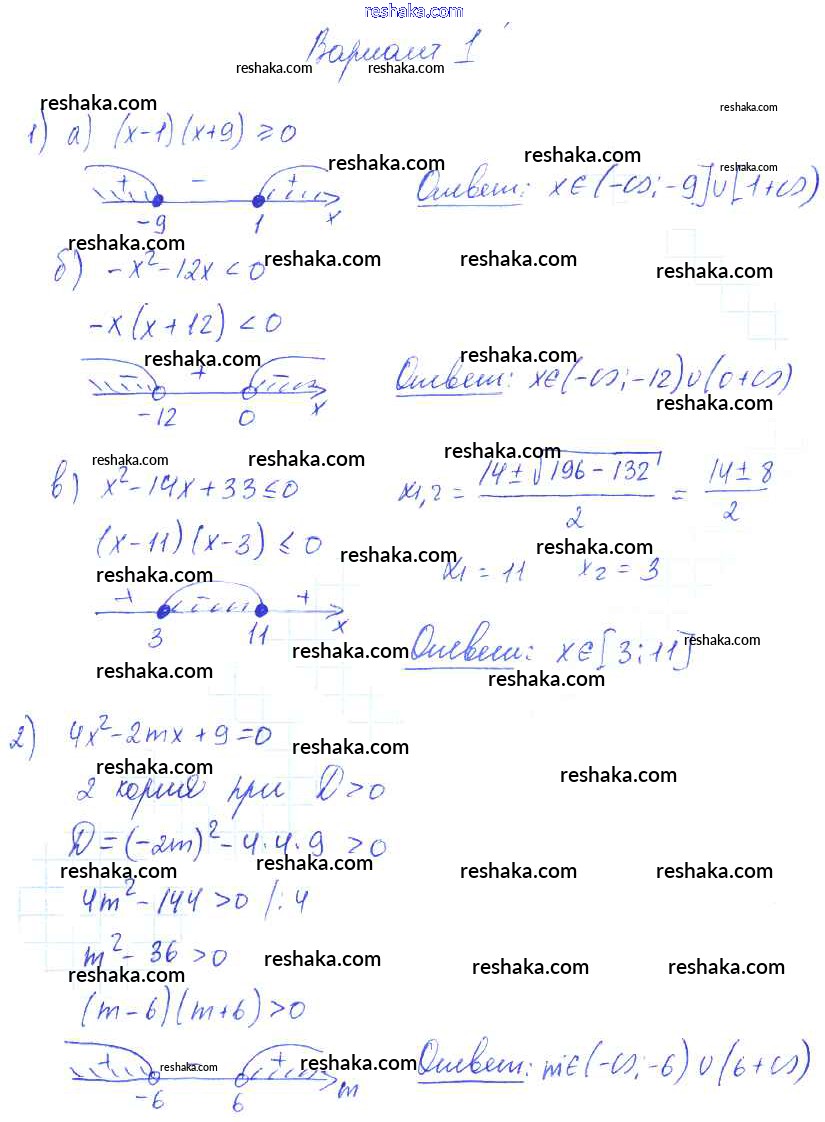 reshaka.com
Вариант 1
reshaka.com reshaka.com
reshaka.com reshaka.com
1) а) (x-1)(x+9) ≥ 0
reshaka.com reshaka.com reshaka.com
+ - +
-9 1 x
Ответ: x∈(-∞;-9]∪[1+∞)
reshaka.com reshaka.com reshaka.com reshaka.com
б) -x²-12x<0
-x(x+12)<0
reshaka.com reshaka.com
- + -
-12 0 x
Ответ: x∈(-∞;-12)∪(0+∞)
reshaka.com
reshaka.com reshaka.com reshaka.com
в) x²-14x+33≤0
x1,2 = 14±√196-132 / 2 = 14±8 / 2
(x-11)(x-3)≤0
reshaka.com reshaka.com
x1=11 x2=3
reshaka.com
+ - +
3 11 x
reshaka.com reshaka.com
Ответ: x∈[3;11]
reshaka.com reshaka.com
2) 4x²-2mx+9=0
reshaka.com
reshaka.com reshaka.com
2 корня при D>0
D=(-2m)²-4·4·9>0
reshaka.com reshaka.com reshaka.com reshaka.com
4m²-144>0 /:4
m²-36>0
reshaka.com reshaka.com reshaka.com reshaka.com
(m-6)(m+6)>0
+ - +
reshaka.com reshaka.com
-6 6 m
Ответ: m∈(-∞;-6)∪(6+∞)